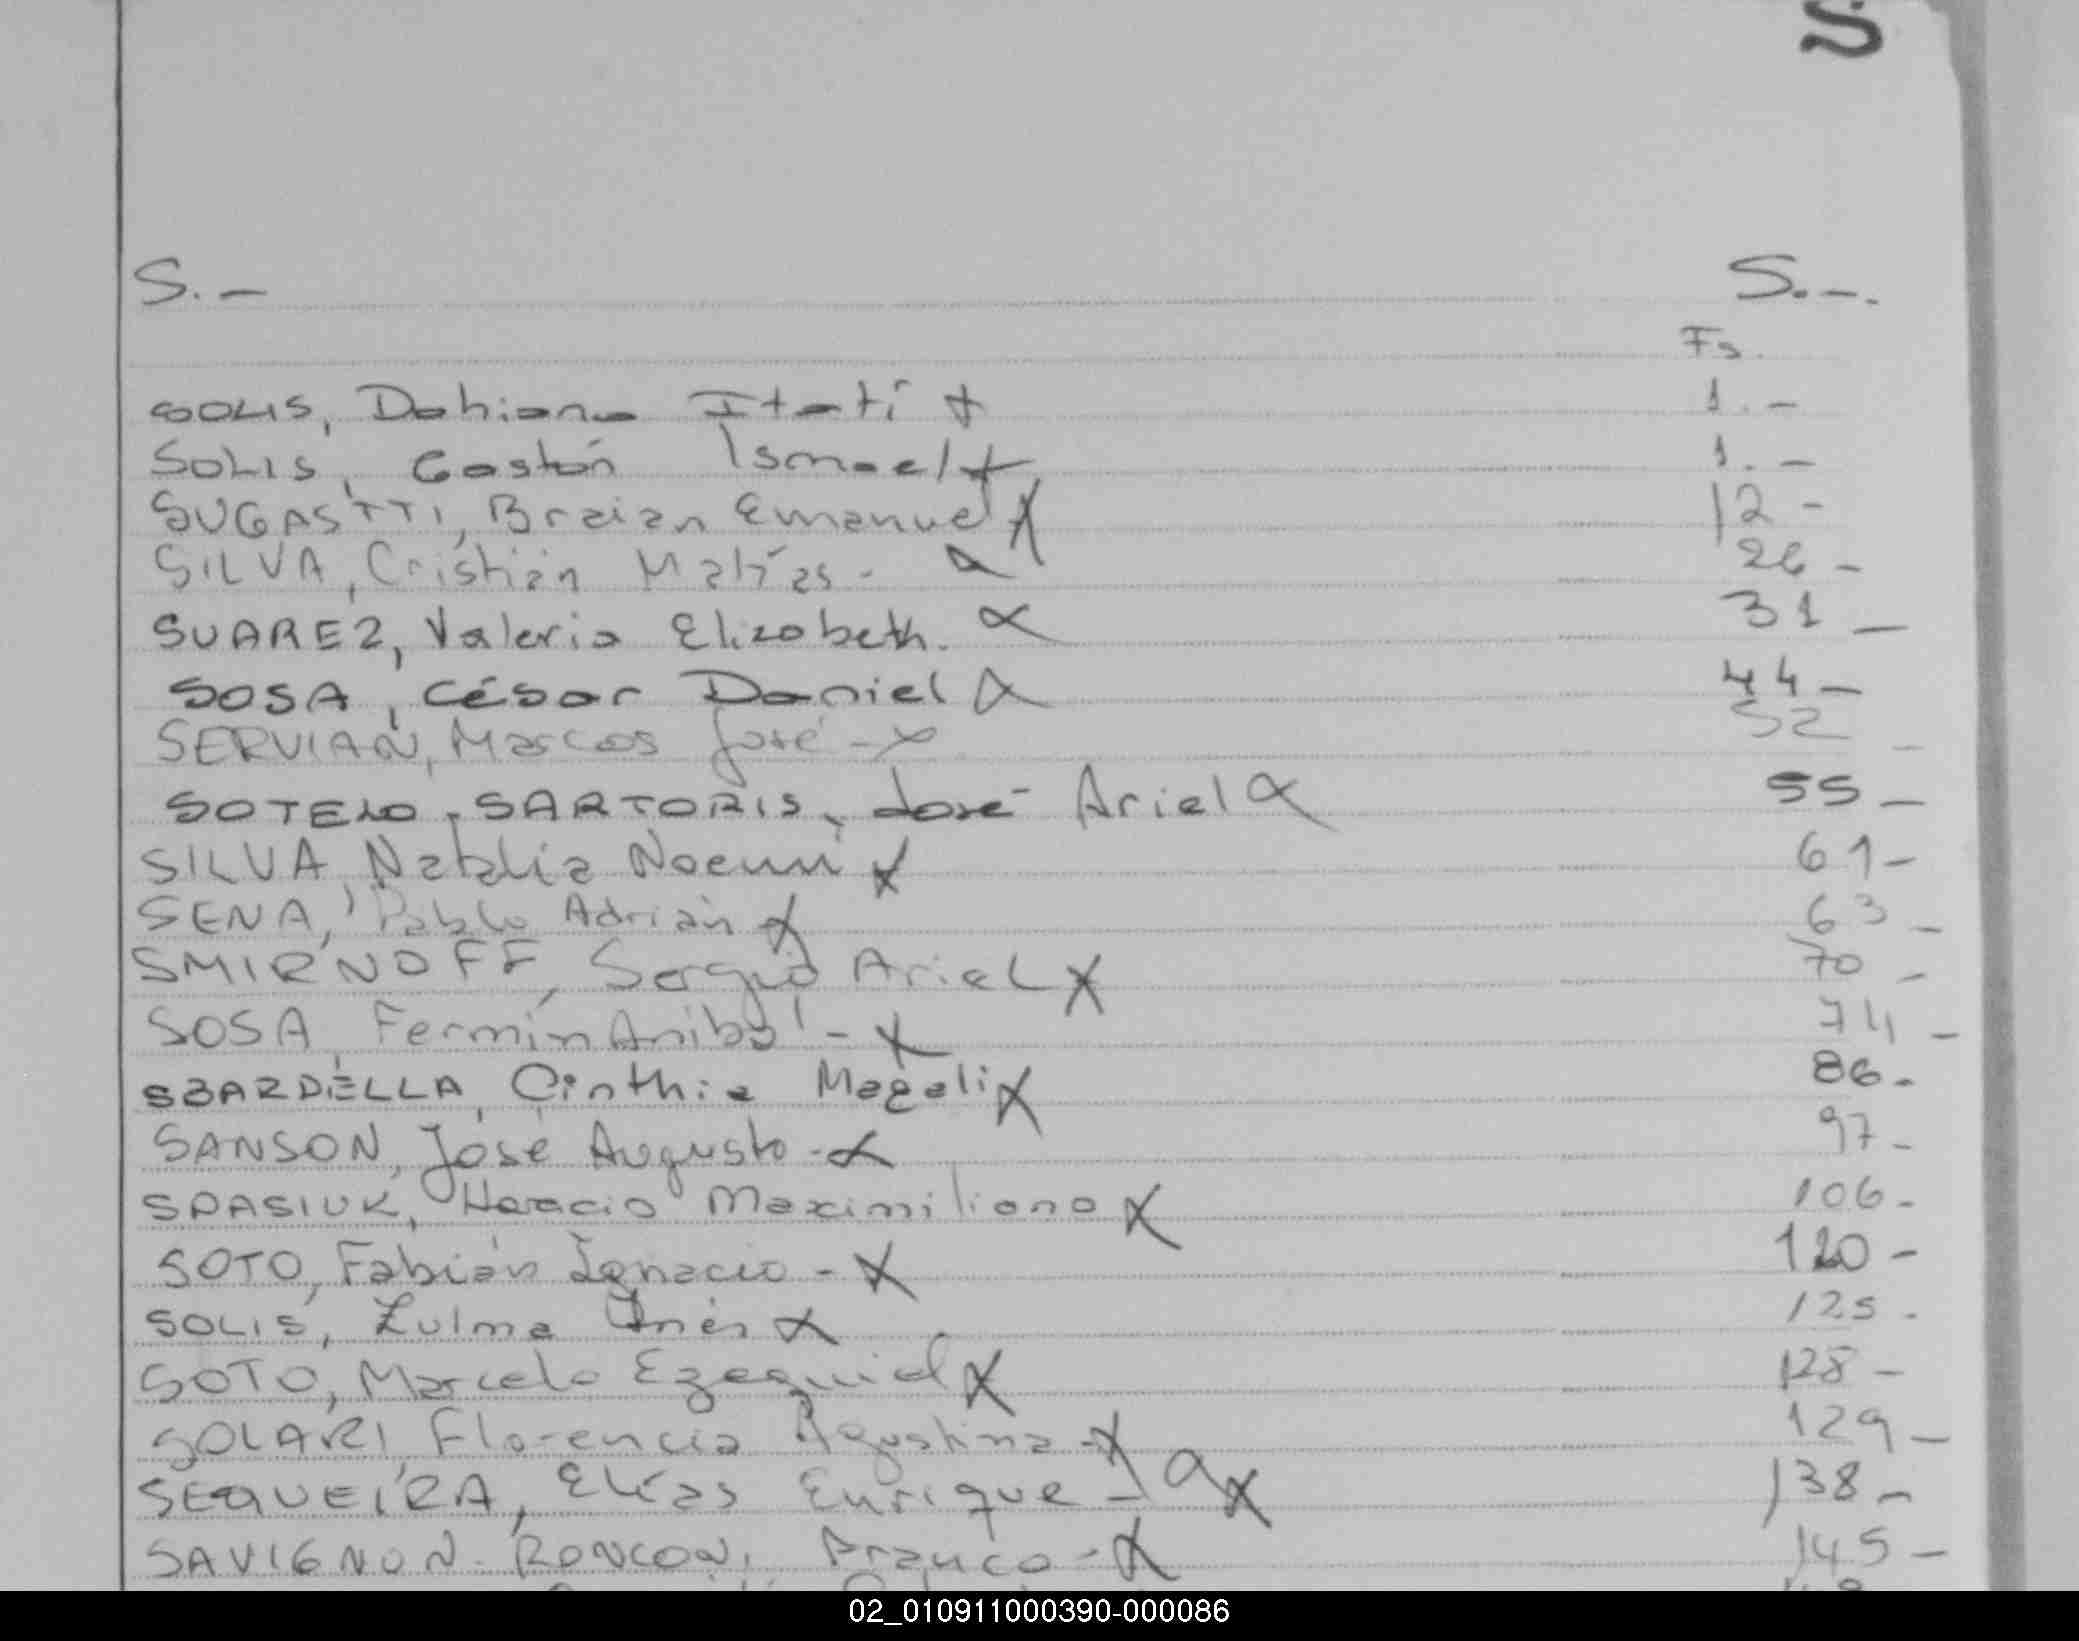 S
S.- S.-.
Fs.
SOLIS, Dahiana Itatí 1.-
SOLIS, Gastón Ismael 1.-
SUGASTTI, Braian Emanuel 12-
SILVA, Cristián Matías- 26-
SUAREZ, Valeria Elizabeth. 31-
SOSA, César Daniel 44-
SERVIAN, Marcos José- 52-
SOTELO, SARTORIS, José Ariel 55-
SILVA, Natalia Noemí 61-
SENA, Pablo Adrián 63-
SMIRNOFF, Sergio Ariel 70-
SOSA, Fermín Anibal- 74-
SBARDELLA, Cinthia Magali 86-
SANSON, José Augusto- 97-
SPASIUK, Horacio Maximiliano 106-
SOTO, Fabián Ignacio- 120-
SOLIS, Zulma Inés 125.
SOTO, Marcelo Ezequiel 128-
SOLARI, Florencia Agustina- 129-
SEQUEIRA, Elías Enrique- 138-
SAVIGNON-RONCONI, Franco- 145-
02_010911000390-000086